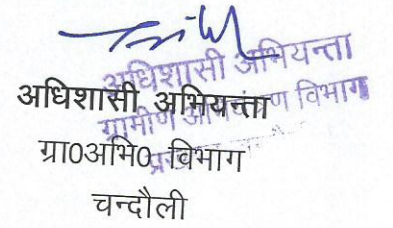 अधिशासी अभियन्ता
ग्रामीण अभियंत्रण विभाग
अधिशासी अभियन्ता
ग्रा0अभि0 विभाग
चन्दौली